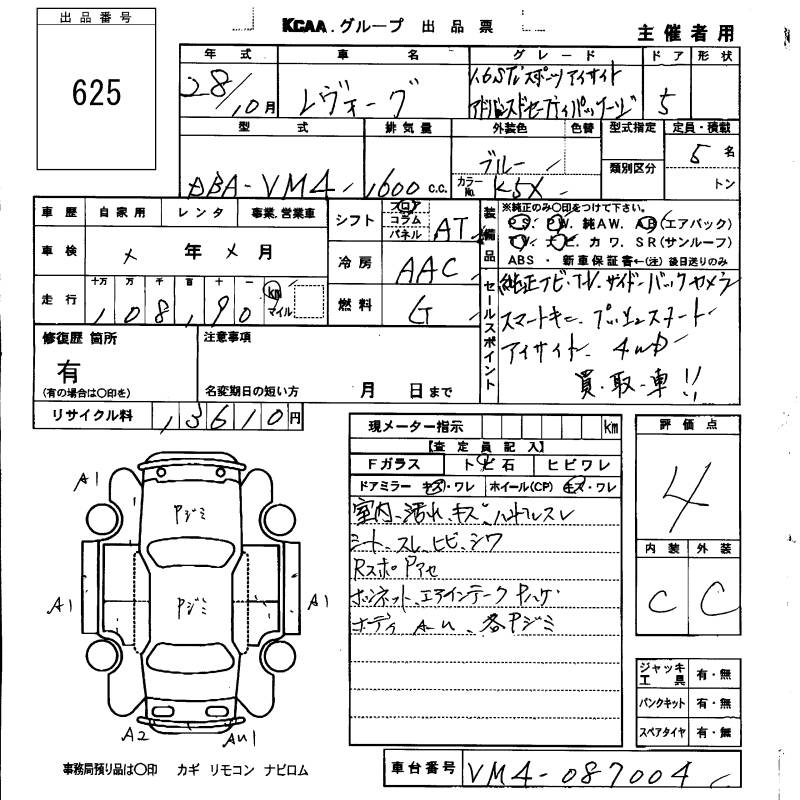 出品番号
625
KCAA.グループ 出品票
主催者用
年式 車名 グレード ドア 形状
28/10月 レヴォーグ 1.6STiスポーツアイサイト
アドバンスドセーフティパッケージ 5
型式 排気量 外装色 色替 型式指定 定員・積載
DBA-VM4 1600 c.c. ブルー 5名
カラーNo. K5X 類別区分 トン
車歴 自家用 レンタ 事業,営業車
車検 × 年 × 月
走行 十万 万 千 百 十 一
108,190 km マイル
シフト フロア コラム パネル AT
冷房 AAC
燃料 G
装備品 ※純正のみ〇印をつけて下さい。
PS. PW. 純AW. AB(エアバック)
TV. ナビ. カワ. SR(サンルーフ)
ABS・新車保証書←(注)後日送りのみ
セールスポイント 純正ナビ・TV.サイド・バックカメラ
スマートキー.プッシュスタート
アイサイト. 4WD
買・取・車!!
修復歴 箇所
有
(有の場合は〇印を)
注意事項
名変期日の短い方 月 日まで
リサイクル料 13610円
現メーター指示 km
【査定員記入】
Fガラス トビ石 ヒビワレ
ドアミラー キズ・ワレ ホイール(CP) キズ・ワレ
室内、汚れ、キズ、ハンドルスレ
シート、スレ、ヒビ、シワ
Rスポ Pアセ
ボンネット、エアインテーク Pハゲ
ボディ A-U、各Pジミ
評価点
4
内装 外装
C C
ジャッキ工具 有・無
パンクキット 有・無
スペアタイヤ 有・無
A1
Pジミ
A1 Pジミ A1
A2 AU1
事務局預り品は〇印 カギ リモコン ナビロム
車台番号 VM4-087004